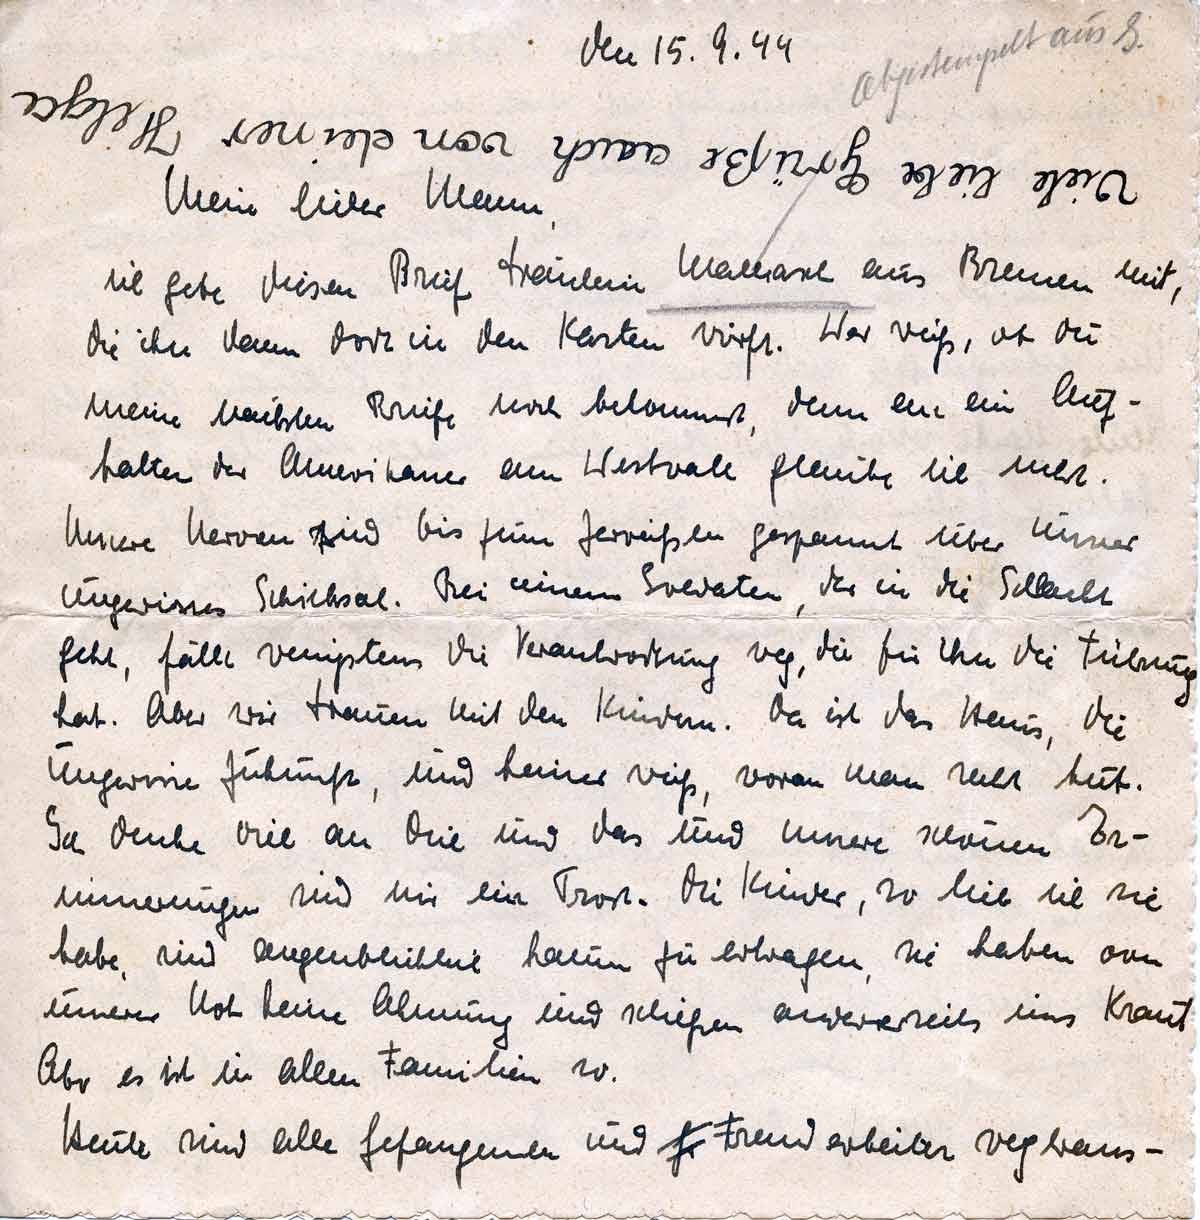 den 15.9.44
Abgestempelt aus B.
Viele liebe Grüße auch von deiner Helga
Mein lieber Mann,
ich gebe diesen Brief Fräulein aus Bremen mit,
die ihn dann dort in den Kasten wirft. Wer weiß, ob du
meine nächsten Briefe noch bekommst, denn an ein Auf-
halten der Amerikaner am Westwall glaube ich nicht.
Unsere Nerven sind bis zum Zerreißen gespannt über unser
ungewisses Schicksal. Bei einem Soldaten, der in die Schlacht
geht, fällt wenigstens die Verantwortung weg, die für ihn die Führung
hat. Aber wir Frauen mit den Kindern. Da ist das Haus, die
ungewisse Zukunft, und keiner weiß, woran man recht tut.
Ich denke viel an dich und das und unsere schönen Er-
innerungen sind mir ein Trost. Die Kinder, so lieb ich sie
habe, sind augenblicklich kaum zu ertragen, sie haben von
unserer Not keine Ahnung und schießen andererseits ins Kraut
Aber es ist in allen Familien so.
Heute sind alle Gefangenen und Fremdarbeiter wegtrans-